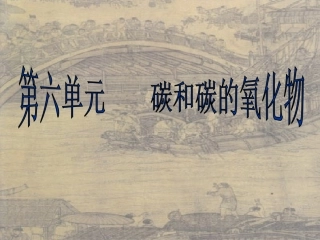 第六单元 碳和碳的氧化物